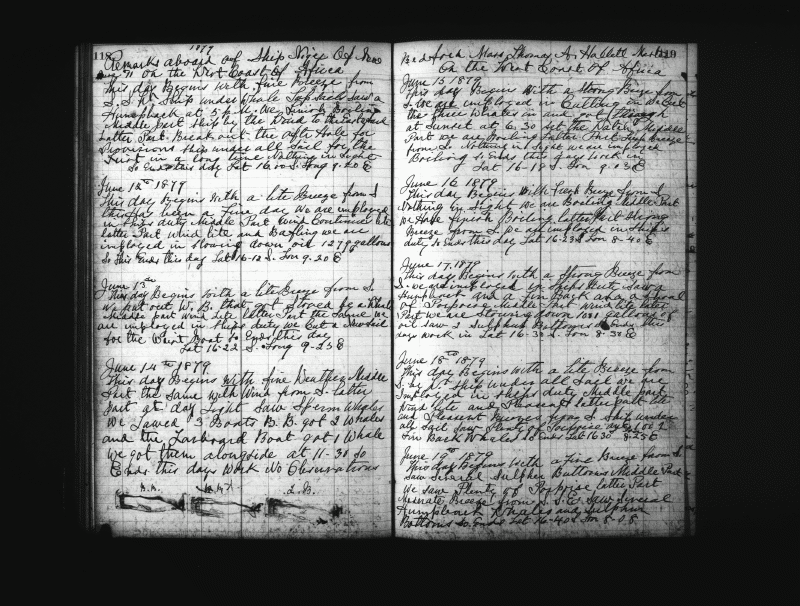 118
1879
Remarks aboard of Ship Niger Of New
on the West Coast Of Africa
This day Begins With Fine Breeze from
S. S. E. Ship under Whale Topsails Saw a
Humpback at 5 P.M. we finish Boyling
Middle part Ship by the Wind to the Eastward
Latter Part Break out the after Hole for
Provisions Ship under all Sail for the
First in a long time Nothing in Sight
So Ends this day Lat 16-10 S. Long 9-20 E
June 12th 1879
This day Begins With a lite Breeze from S
this has been a fine day We are imployed
in Ships duty Middle Part Wind Continues lite
latter Part Wind lite and Bafling we are
imployed in Stowing down oil 1279 gallons
So this Ends this day Lat 16-12 S. Lon 9-20 E
June 13th
This day Begins With a lite Breeze from S.
we put out W. B. that got Stoved by a Whale
Middle part Wind lite latter Part the Same we
are imployed in Ships duty we Cut a New Sail
for the Waist Boat So Ends this day
Lat 16-22 S. Long 9-25 E
June 14th 1879
This day Begins With fine Weather Middle
Part the Same With Wind from S. latter
part at day light Saw Sperm Whales
We Lowed 3 Boats B.B. got 2 Whales
and the Larboard Boat got 1 Whale
we got them alongside at 11-30 So
Ends this days Work No Observations
L. B.
119
Bedford Mass, Thomas A. Hablatt Master
On the West Coast Of Africa
June 15 1879
This day Begins With a Strong Breeze from
S. We are imployed in Cutting in we Cut
the three Whales in and got through
at Sunset at 6.30 set the Watch Middle
Part we are Boyling latter Part Fresh Breeze
from S. Nothing in Sight we are imployed
Boyling So Ends this days Work in
Lat 16-18 S. Lon 9-03 E
June 16 1879
This day Begins With fresh Breeze from S.
Nothing in Sight we are Boyling Middle Part
we Have finish Boyling latter Part Strong
Breeze from S. we are imployed in Ships
duty So Ends this day Lat 16-23 S Lon 8-40 E
June 17, 1879
This day Begins With a Strong Breeze from
S. we are imployed in Ships duty, Saw a
Humpback and a fin Back and a Shoal
of Porpoise Middle Part Wind lite latter
Part we are Stowing down 1031 gallons of
oil Saw 2 Sulphur Bottoms So Ends this
days Work in Lat 16-30 S. Lon 8-30 E
June 18th 1879
This day Begins With a lite Breeze from
Ship under all Sail we are
Imployed in Ships duty Middle Part
Wind lite and Pleasant latter Part lite
and Plesent Breeze from S. Ship under
all Sail Saw Plenty of Porpoise and 2
Fin Back Whales So Ends Lat 16-30 8-25 E
June 19th 1879
This day Begins With a Fine Breeze from S.
Saw Several Sulphur Bottoms Middle Part
We Saw Plenty of Porpoise latter Part
Moderate Breeze from S. E. Saw Several
Humpback Whales and Sulphur
Bottoms So Ends Lat 16-40 S Lon 8-08